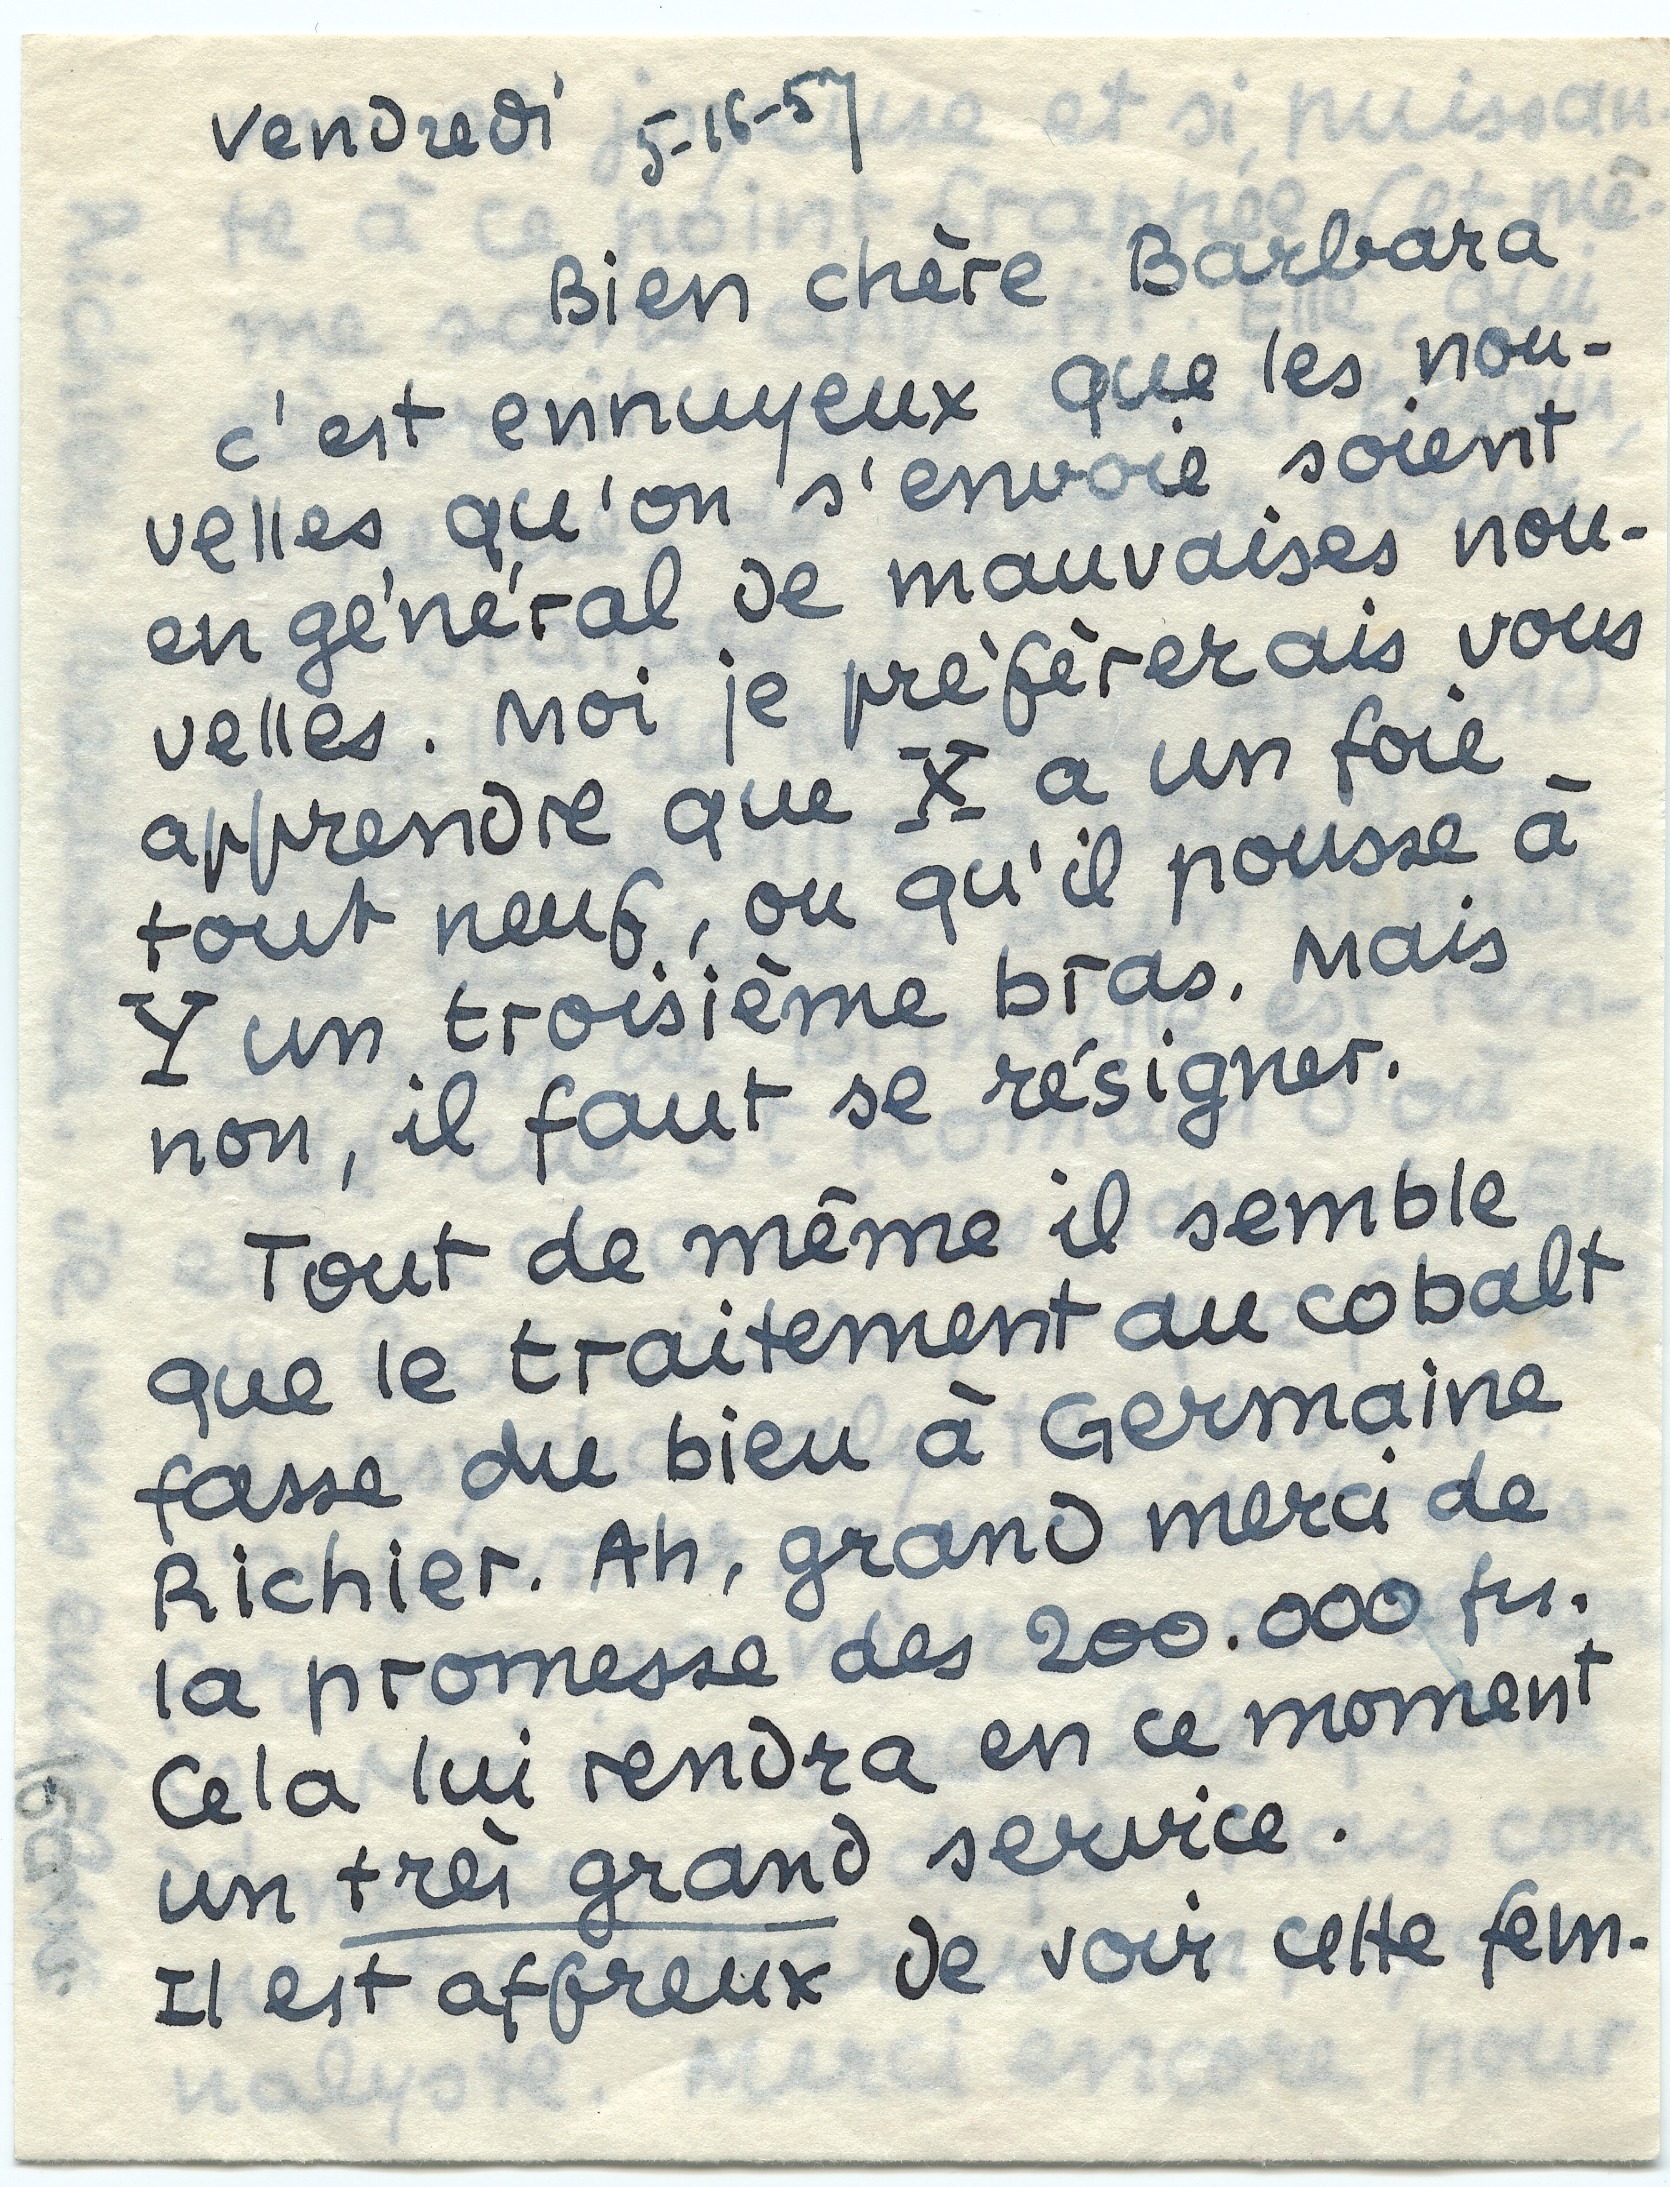 vendredi 5-16-57
Bien chère Barbara
c'est ennuyeux que les nou-
velles qu'on s'envoie soient
en général de mauvaises nou-
velles. Moi je préfèrerais vous
apprendre que X a un foie
tout neuf, ou qu'il pousse à
Y un troisième bras. Mais
non, il faut se résigner.
Tout de même il semble
que le traitement au cobalt
fasse du bien à Germaine
Richier. Ah, grand merci de
la promesse des 200.000 frs.
Cela lui rendra en ce moment
un très grand service.
Il est affreux de voir cette fem-